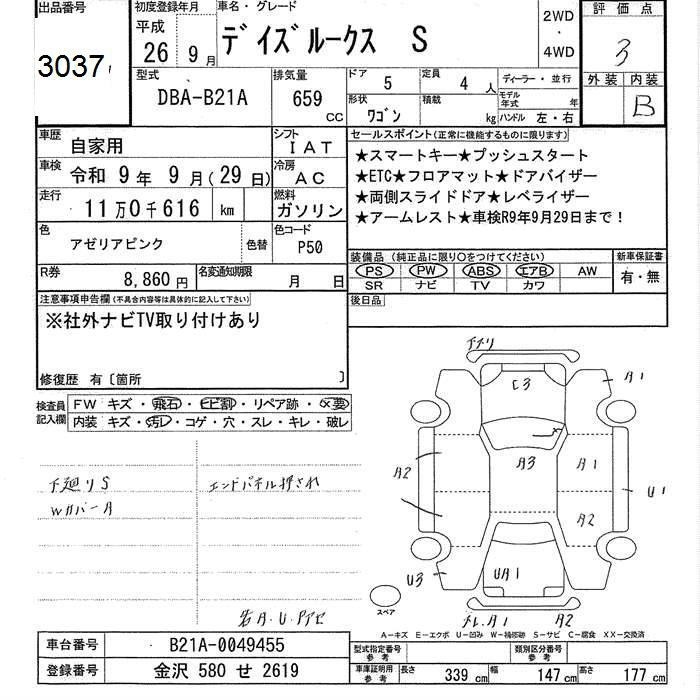 出品番号
3037
初度登録年月
平成
26年 9月
車名・グレード
デイズルークス S
2WD
・
4WD
評価点
3
外装 内装
B
型式
DBA-B21A
排気量
659 CC
ドア
5
定員
4 人
ディーラー・並行
形状
ワゴン
積載
kg
モデル年式 年
ハンドル 左・右
車歴
自家用
シフト
IAT
車検
令和 9年 9月(29日)
冷房
AC
走行
11万0千616 km
燃料
ガソリン
色
アゼリアピンク
色替
色コード
P50
R券
8,860円
名変通知期限
月 日
セールスポイント(正常に機能するものに限ります)
★スマートキー★プッシュスタート
★ETC★フロアマット★ドアバイザー
★両側スライドドア★レベライザー
★アームレスト★車検R9年9月29日まで!
装備品(純正品に限り○をつけてください)
PS PW ABS エアB AW
SR ナビ TV カワ
新車保証書
有・無
後日品
注意事項申告欄(不具合内容等は具体的に記入して下さい)
※社外ナビTV取り付けあり
修復歴 有〔箇所 〕
検査員記入欄
FW キズ・飛石・ヒビ割・リペア跡・(×要)
内装 キズ・汚レ・コゲ・穴・スレ・キレ・破レ
下廻りS
Wカバー A
エンドパネル押され
若A.U.Pアセ
アメリ
C3
A1
A2
A3
A1
U1
A2
U3
UA1
スペア
メレ.A1
A2
A-キズ E-エクボ U-凹み W-補修跡 S-サビ C-腐食 XX-交換済
車台番号
B21A-0049455
登録番号
金沢 580 せ 2619
型式指定番号
参考
類別区分番号
参考
車庫証明用
参考
長さ
339 cm
幅
147 cm
高さ
177 cm